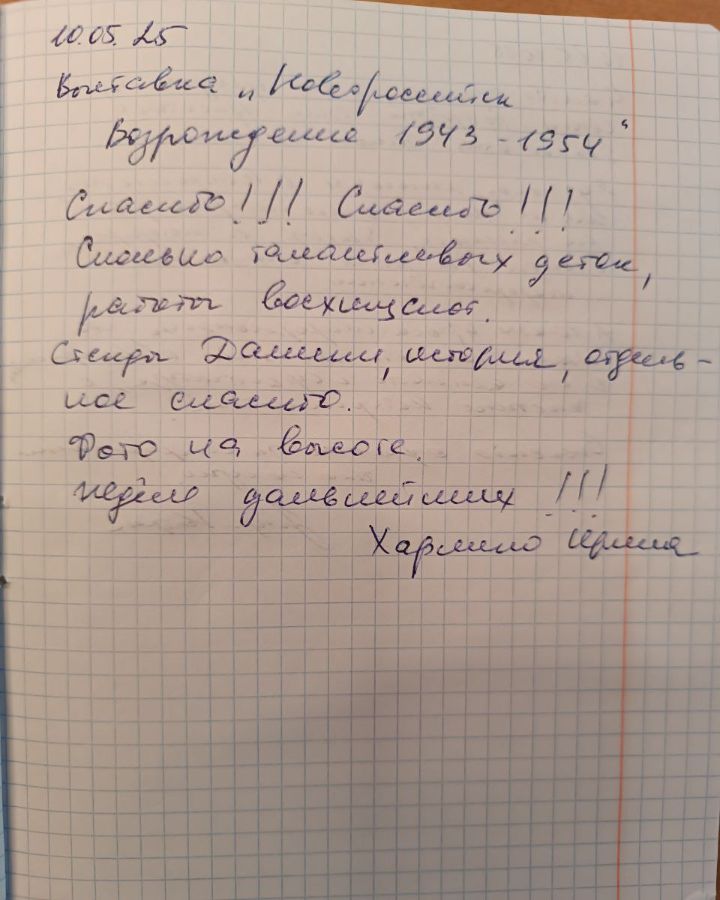 10.05.25
Выставка „Новороссийск
Возрождение 1943 - 1954“
Спасибо!!! Спасибо!!!
Сколько талантливых деток,
работы восхищают.
Стенды , история, отдель-
ное спасибо.
Фото на высоте.
дальнейших !!!
Ирина